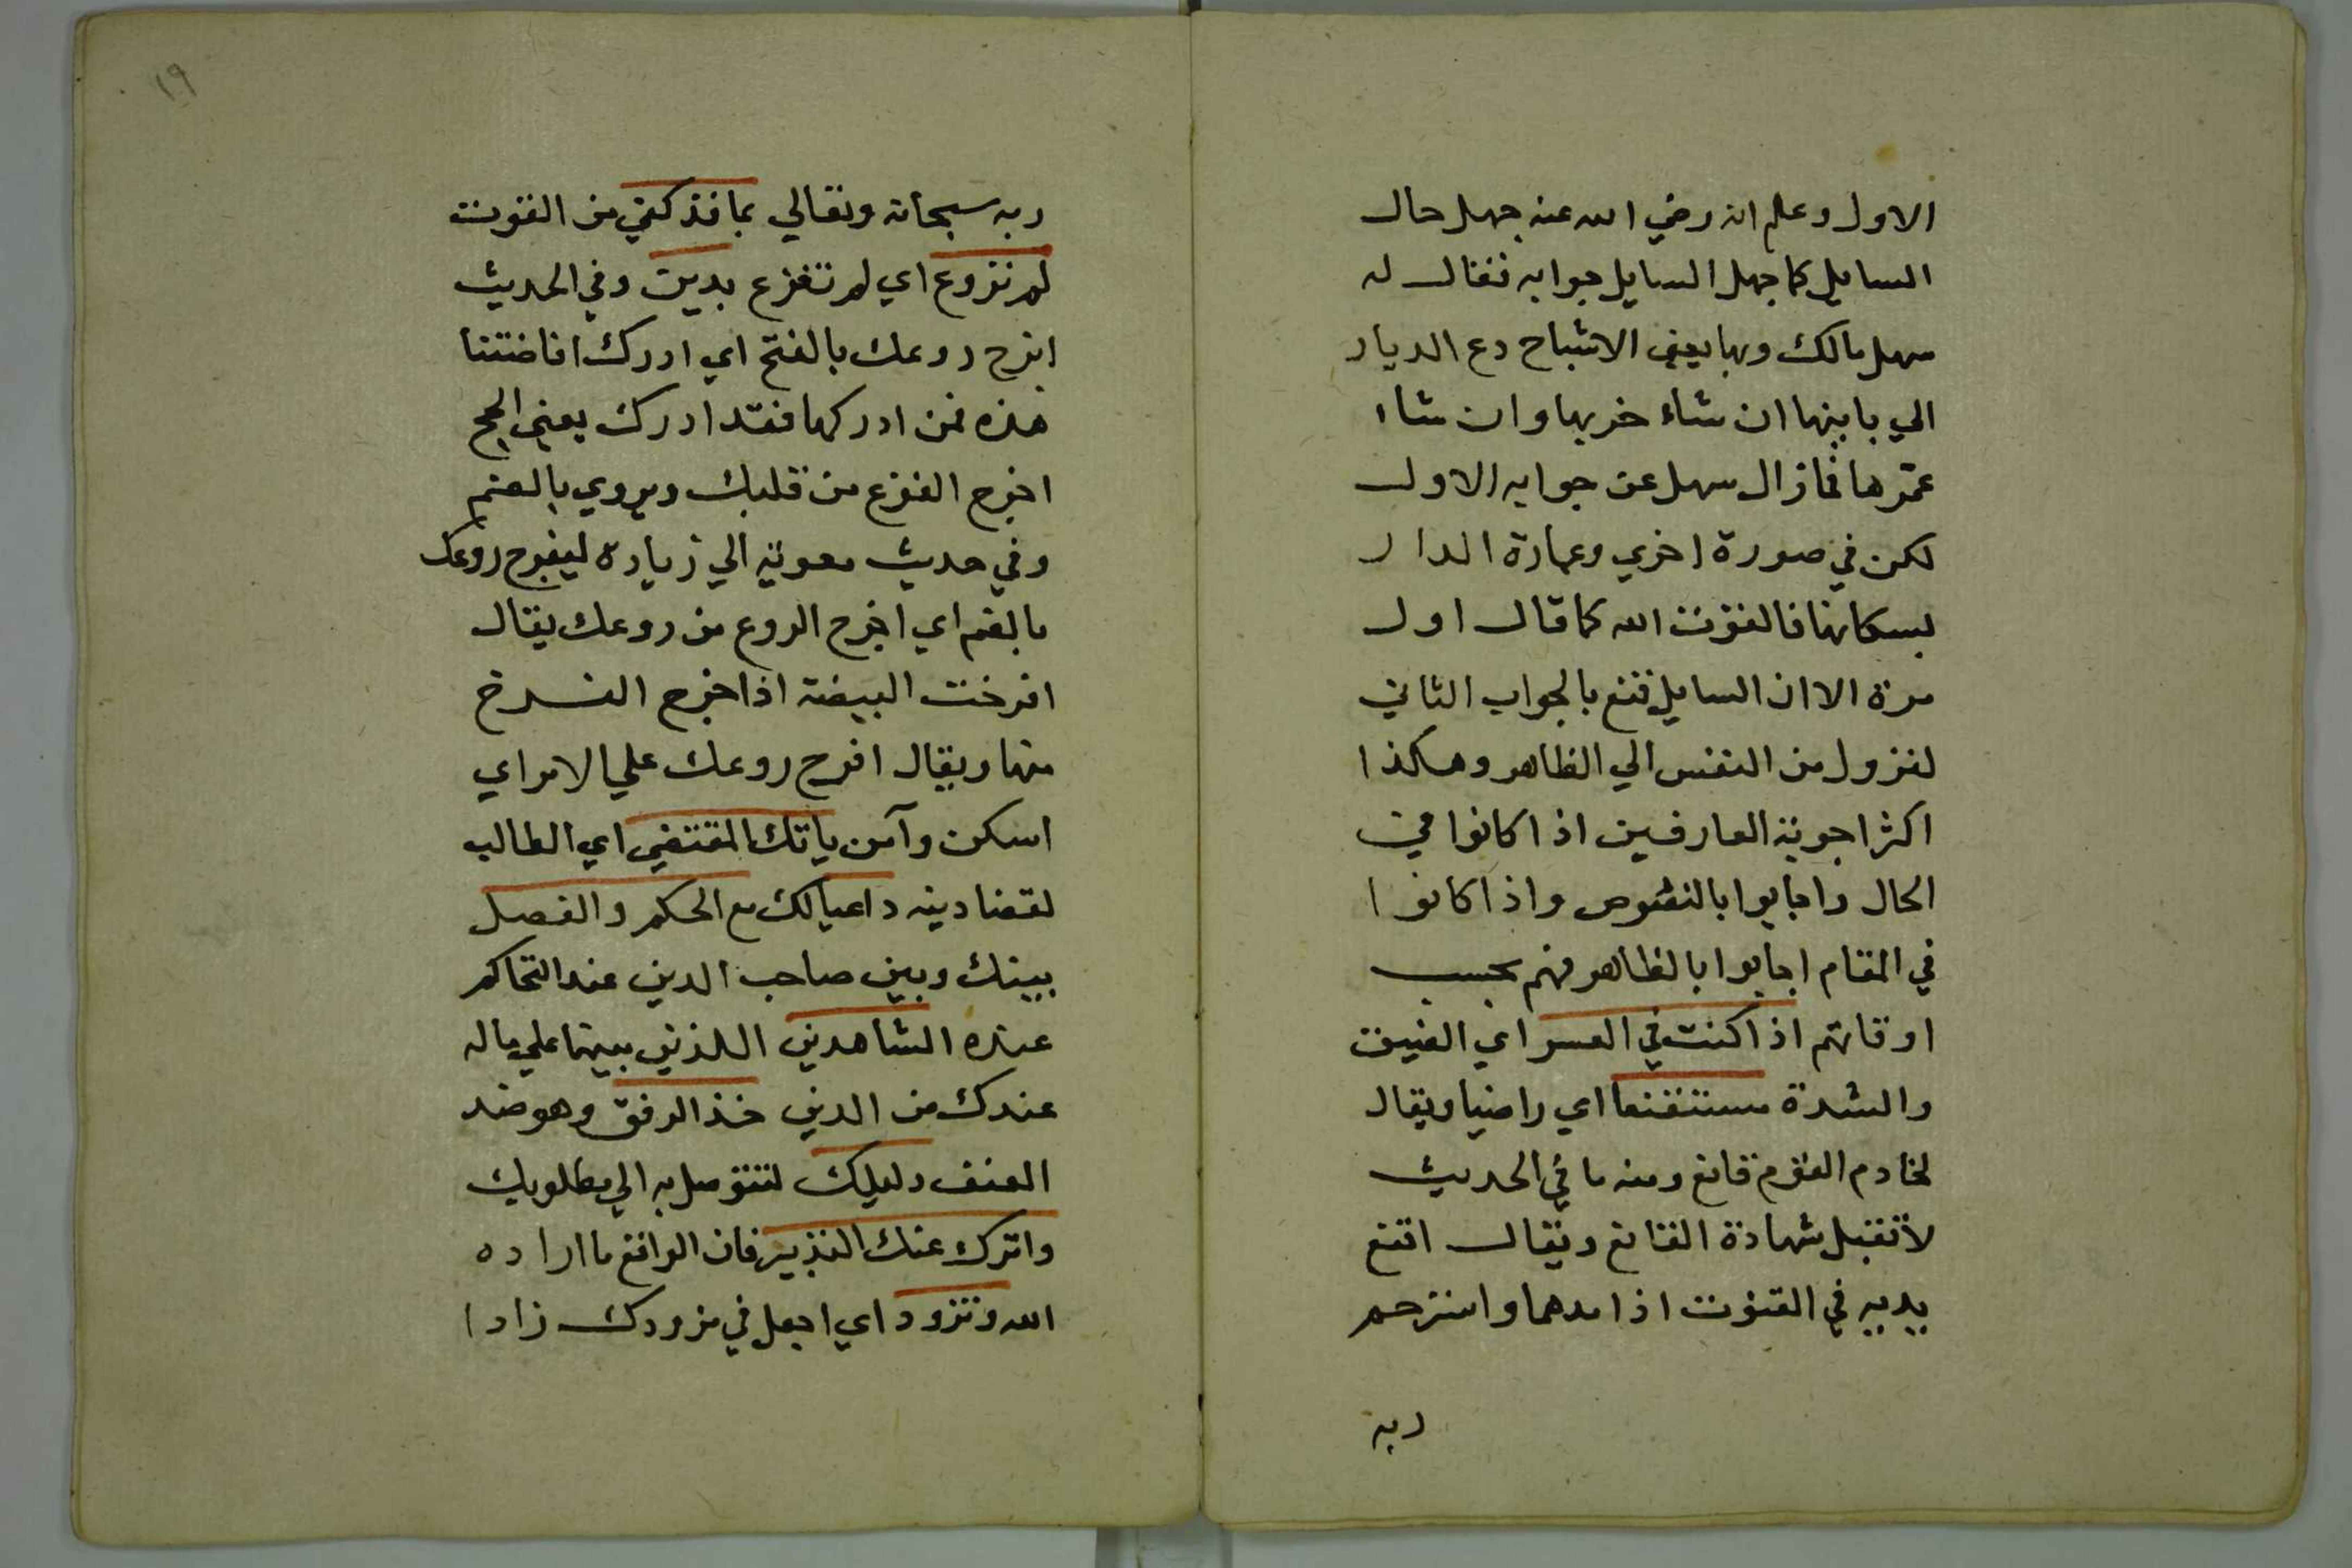 الاول وعلم انه رضي الله عنه جهل حال
السايل كما جهل السايل جوابه فقال له
سهل مالك وبها يعني الاشباح دع الديار
الي بانيها ان شاء خربها وان شاء
عمرها فما زال سهل عن جوابه الاول
لكن في صورة اخري وعمارة الدار
بسكانها فالقوت الله كما قال اول
مرة الا ان السايل قنع بالجواب الثاني
لنزول من النفس الي الظاهر وهكذا
اكثر اجوبة العارفين اذا كانوا في
الحال واجابوا بالنصوص واذا كانوا
في المقام اجابوا بالظاهر فهم بحسب
اوقاتهم اذا كنت في العسر اي الضيق
والشدة مستقنعا اي راضيا ويقال
لخادم القوم قانع ومنه ما في الحديث
لا تقبل شهادة القانع ويقال اقنع
يديه في القنوت اذا مدهما واسترحم
ربه
١٩
ربه سبحانه وتعالي بما قد كفي من القوت
لم تروع اي لم تفزع بدين وفي الحديث
افرح روعك بالفتح اي ادرك افاضتنا
هذه فمن ادركها فقد ادرك يعني الحج
اخرج الفزع من قلبك ويروي بالضم
وفي حديث معوية الي زياده ليفرح روعك
بالضم اي اخرج الروع من روعك يقال
افرخت البيضة اذا خرج الفرخ
منها ويقال افرح روعك علي الامر اي
اسكن وآمن ياتك المقتضي اي الطالب
لقضا دينه داعيا لك مع الحكم والفصل
بينك وبين صاحب الدين عند التحاكم
عنده الشاهدين اللذين بينهما علي ماله
عندك من الدين خذ الرفق وهو ضد
العنف دليلك لتتوصل به الي مطلوبك
واترك عنك التدبير فان الواقع ما اراده
الله وتزود اي اجعل في مزودك زادا